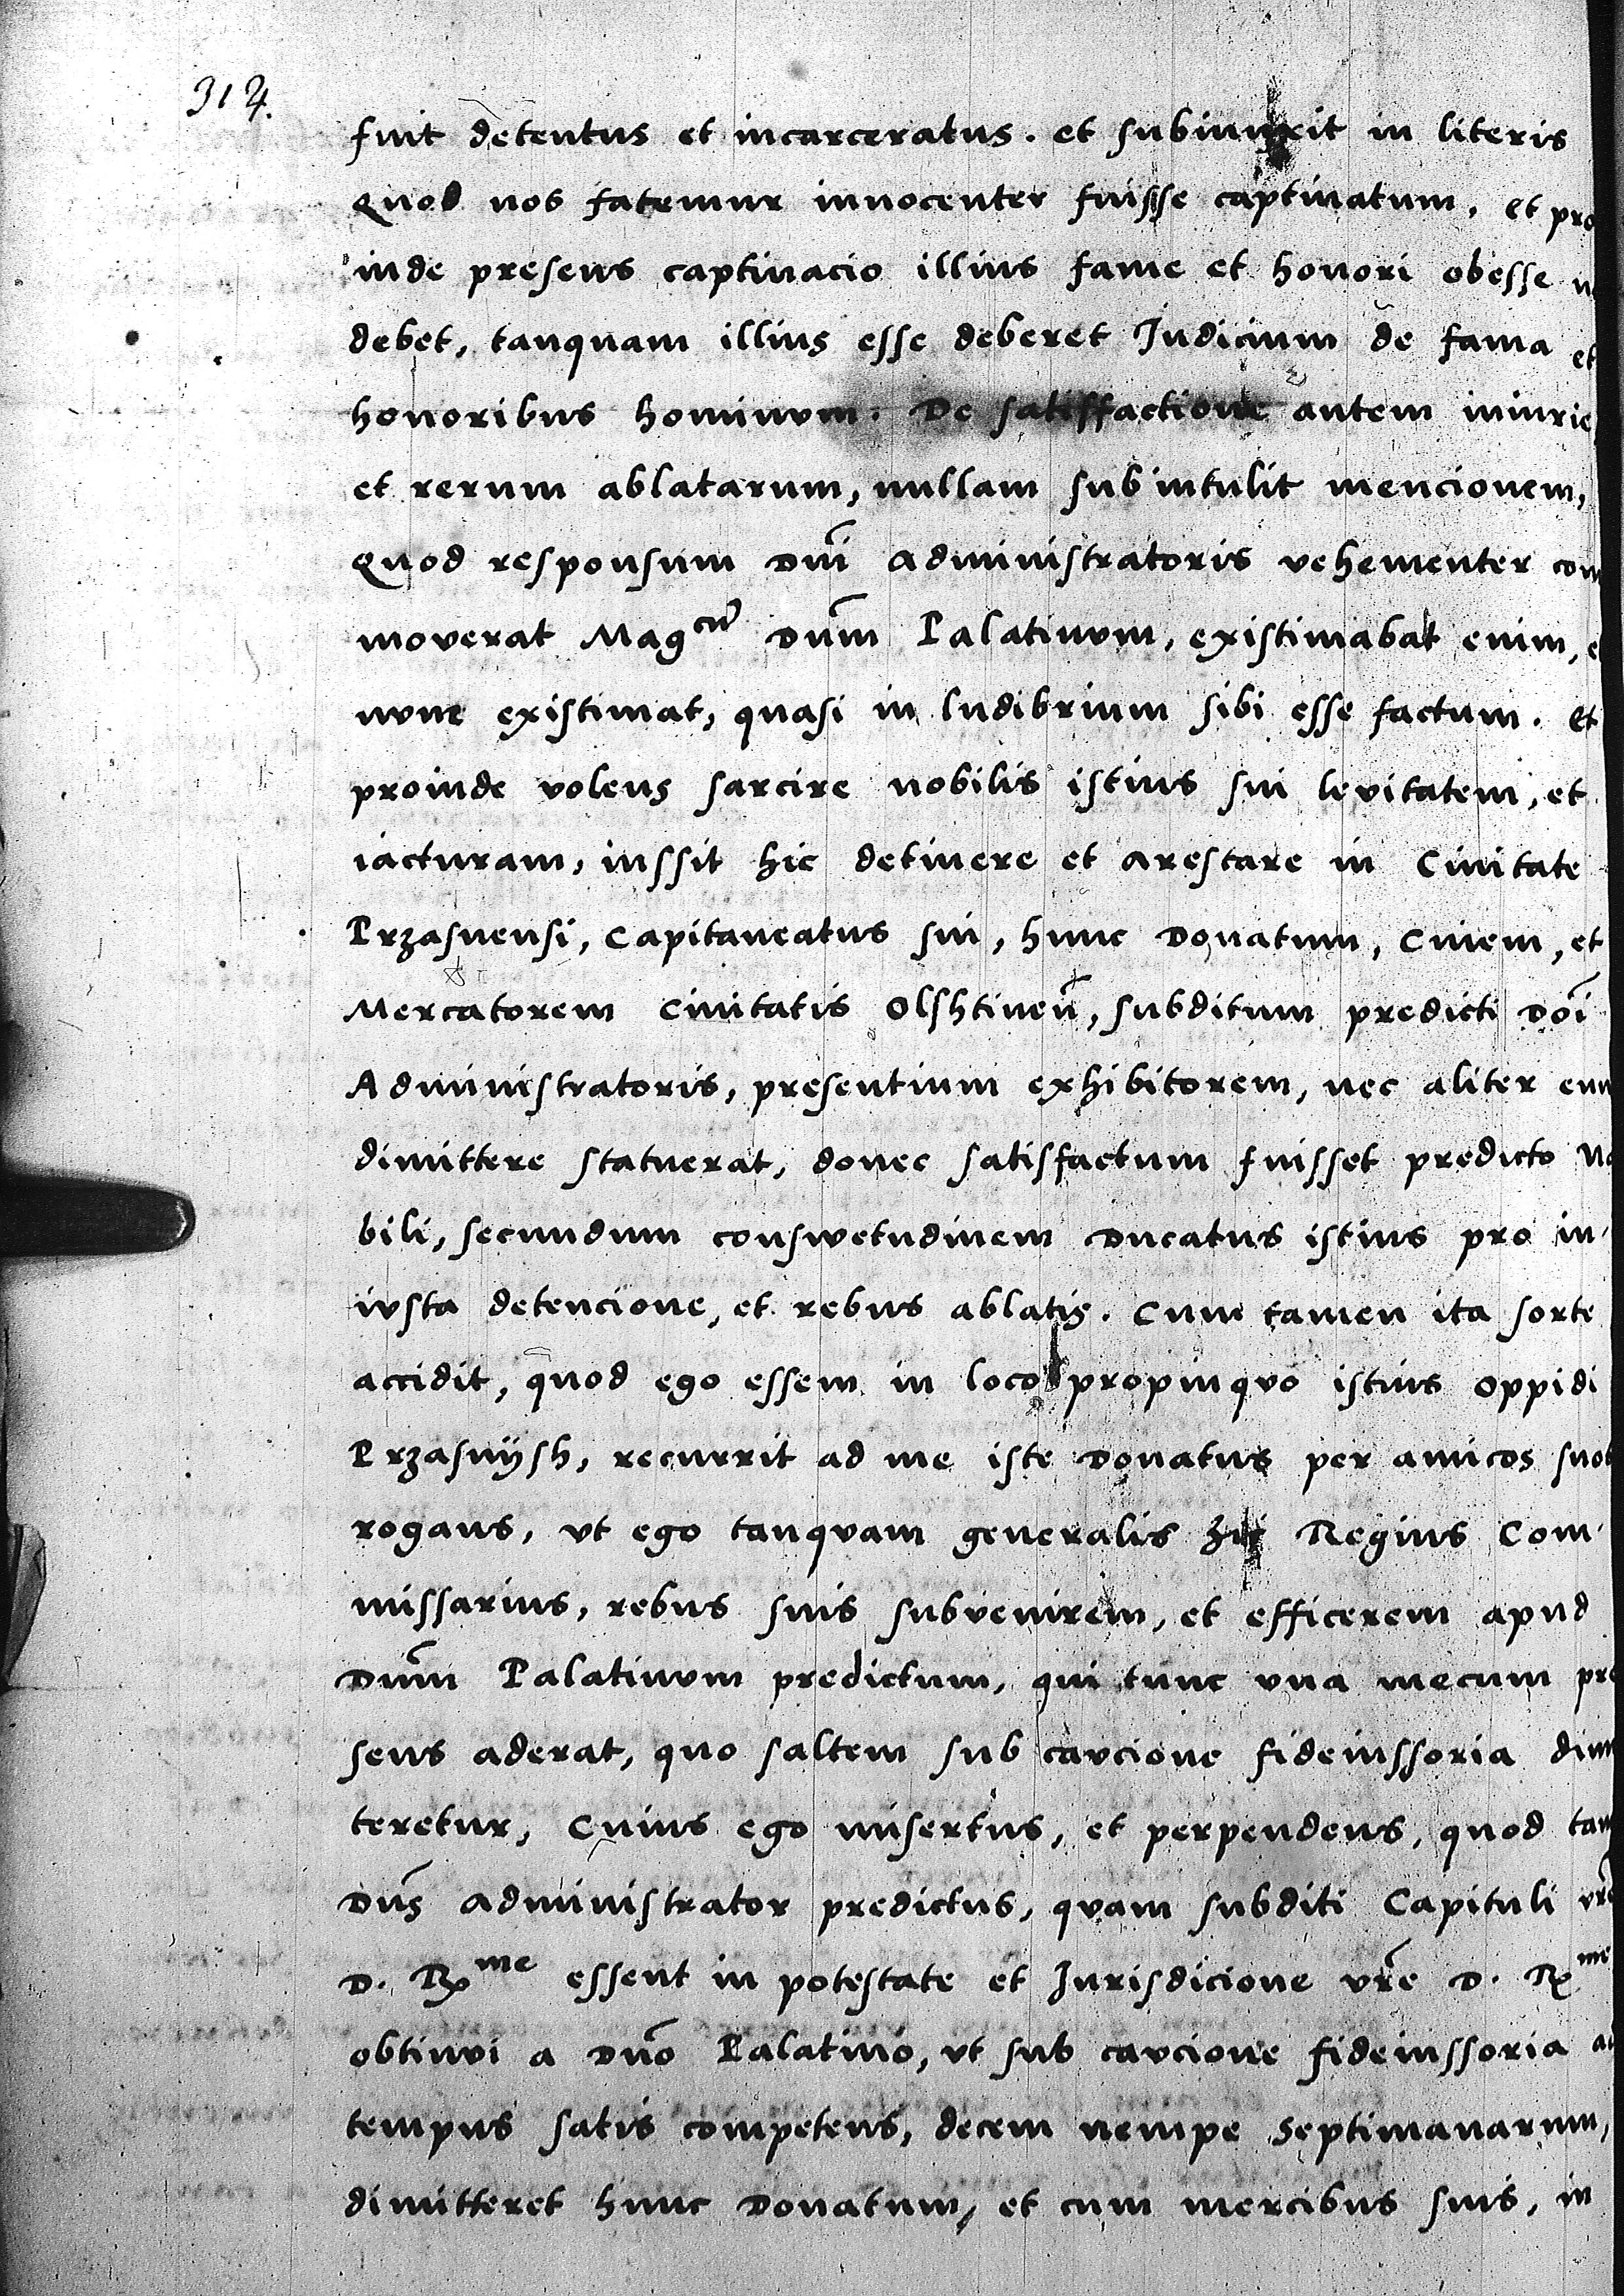 314.
fuit detentus et incarceratus. et subiunxit in literis
Quod nos fatemur innocenter fuisse captiuatum, et pro
inde presens captiuacio illius fame et honori obesse
debet, tanquam illius esse deberet Iudicium de fama et
honoribus hominum. De satisffactione autem iniurie
et rerum ablatarum, nullam subintulit mencionem,
Quod responsum Dnĩ Administratoris vehementer com
moverat Mag^cu Dnm̃ Palatinum, existimabat enim, et
nunc existimat, quasi in ludibrium sibi esse factum. et
proinde volens sarcire nobilis istius sui levitatem, et
iacturam, iussit hic detinere et arestare in Ciuitate
Przasnensi, Capitaneatus sui, hunc Donatum, Ciuem, et
Mercatorem Ciuitatis Olshtineñ, subditum predicti Doĩ
Administratoris, presentium exhibitorem, nec aliter eum
dimittere statuerat, donec satisfactum fuisset predicto No
bili, secundum conswetudinem Ducatus istius pro in
iusta detencione, et rebus ablatis. Cum tamen ita sorte
accidit, quod ego essem in loco propinquo istius oppidi
Przasnÿsh, recurrit ad me iste Donatus per amicos suos
rogans, vt ego tanquam generalis hic Regius Com
missarius, rebus suis subvenirem, et efficerem apud
Dnm̃ Palatinum predictum, qui tunc vna mecum pre
sens aderat, quo saltem sub caucione fideiussoria dimit
teretur, Cuius ego misertus, et perpendens, quod tam
Dns̃ Administrator predictus, quam subditi Capituli vrẽ
D. R^me essent in potestate et Jurisdicione vrẽ D. R^me
obtinui a Dnõ Palatino, vt sub caucione fideiussoria ad
tempus satis competens, decem nempe septimanarum,
dimitteret hunc Donatum, et cum mercibus suis, in